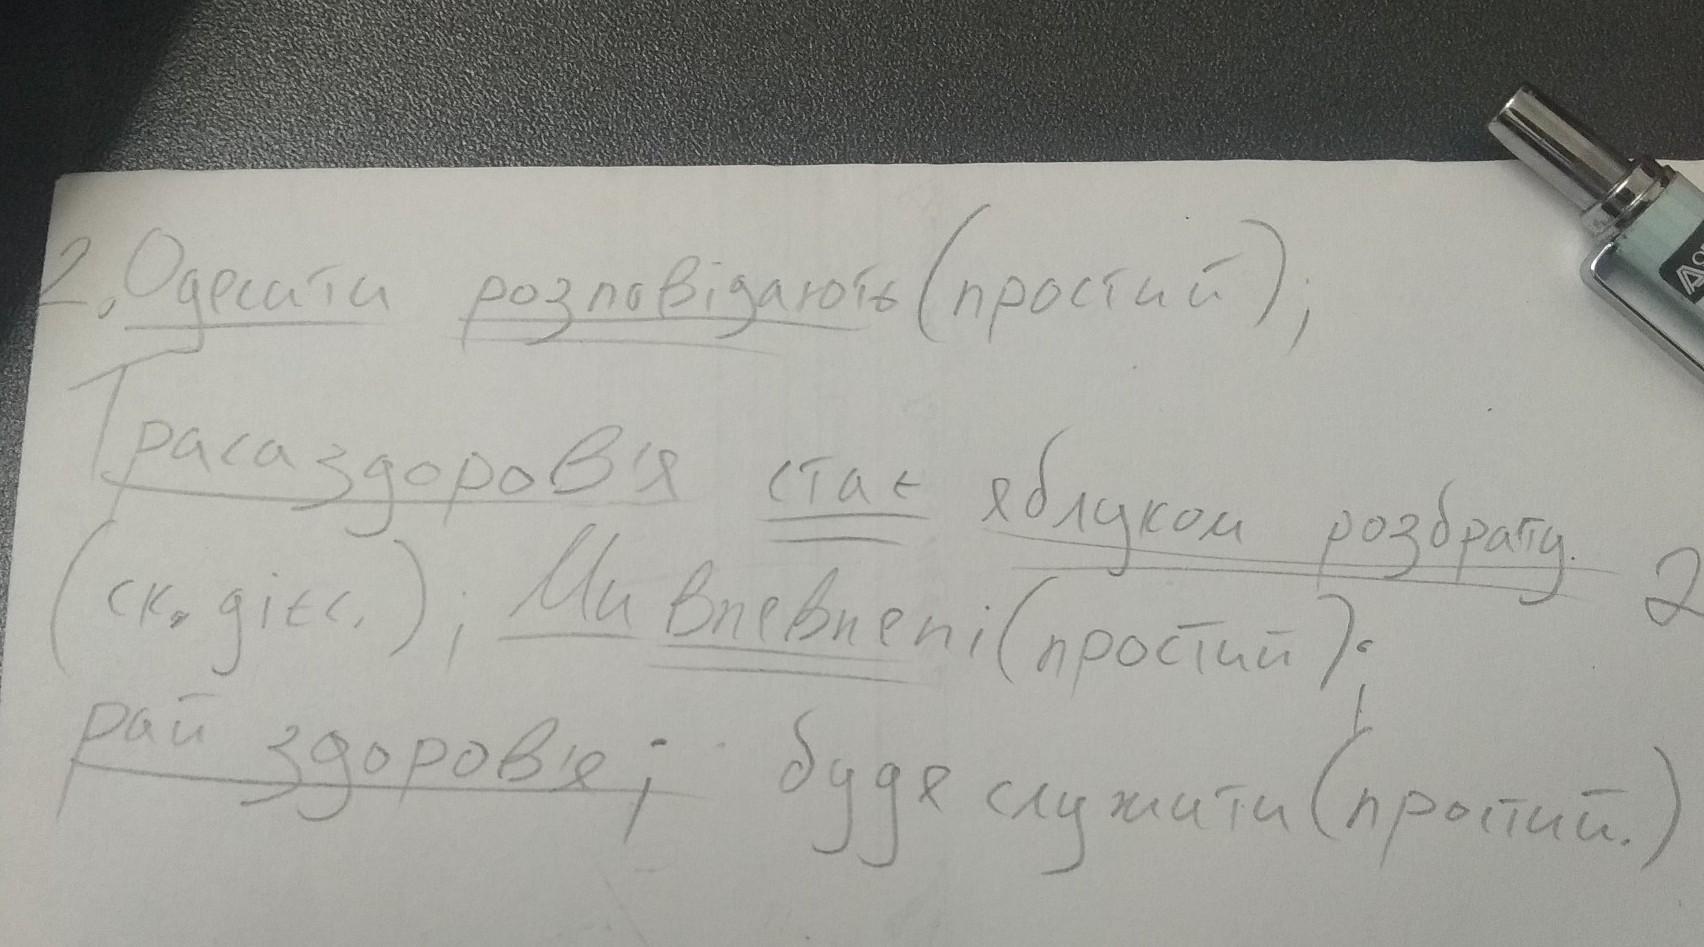 2. Одесити розповідають (простий);
Траса здоров'я стає яблуком розбрату.
(ск. дієс.); Ми впевнені (простий); 2
рай здоров'я; буде служити (простий.)